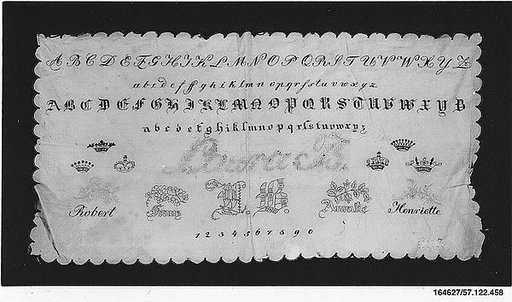 A B C D E F G H I K L M N O P Q R S T U V W X Y Z
a b c d e f f g h i k l m n o p q r s t u v w x y z
A B C D E F G H I K L M N O P Q R S T U V W X Y Z
a b c d e f g h i k l m n o p q r s t u v w x y z
Laura B.
Robert Fanny Amalie Henriette
1 2 3 4 5 6 7 8 9 0
164627/57.122.458